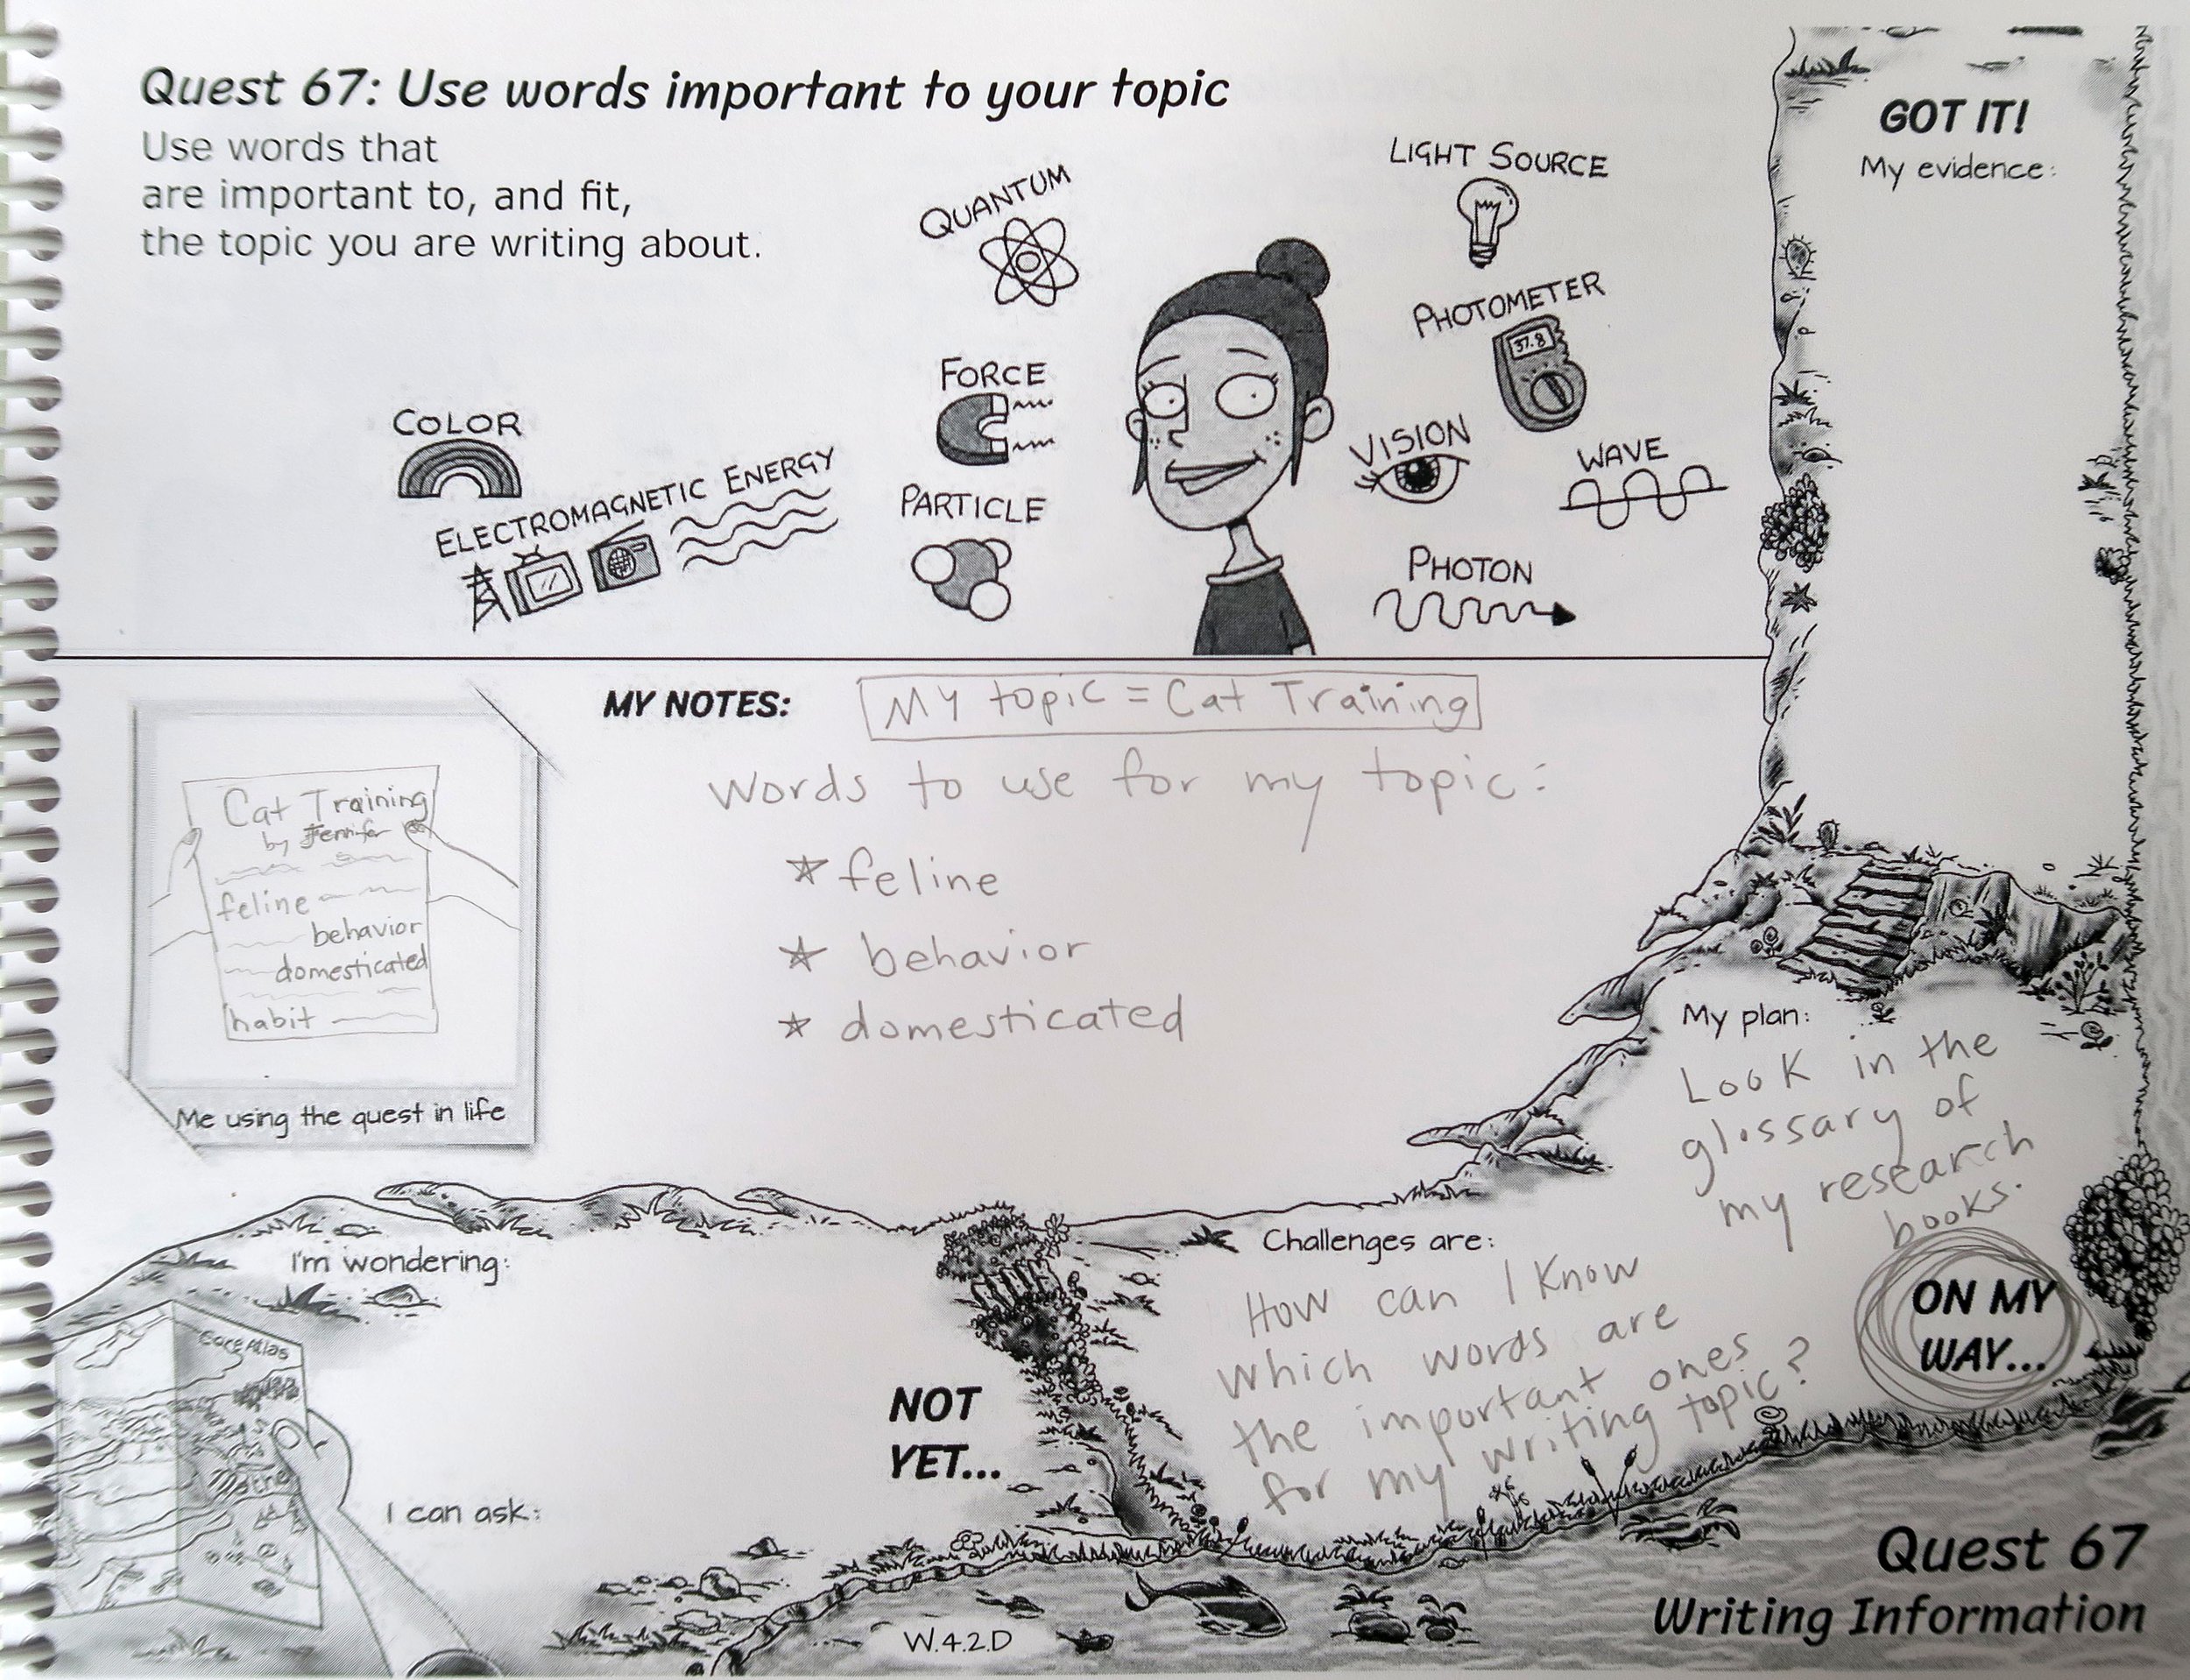 Quest 67: Use words important to your topic
Use words that
are important to, and fit,
the topic you are writing about.
COLOR
ELECTROMAGNETIC ENERGY
QUANTUM
FORCE
PARTICLE
LIGHT SOURCE
PHOTOMETER
37.8
VISION
WAVE
PHOTON
GOT IT!
My evidence:
MY NOTES:
My topic = Cat Training
Words to use for my topic:
feline
behavior
domesticated
Cat Training
by Jennifer
feline
behavior
domesticated
habit
Me using the quest in life
My plan:
Look in the
glossary of
my research
books.
ON MY
WAY...
Challenges are:
How can I know
which words are
the important ones
for my writing topic?
I'm wondering:
Core Atlas
NOT
YET...
I can ask:
W.4.2.D
Quest 67
Writing Information